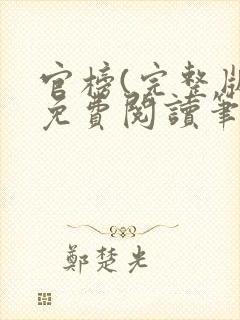 官榜(完整版
免費閱讀筆
鄭楚光